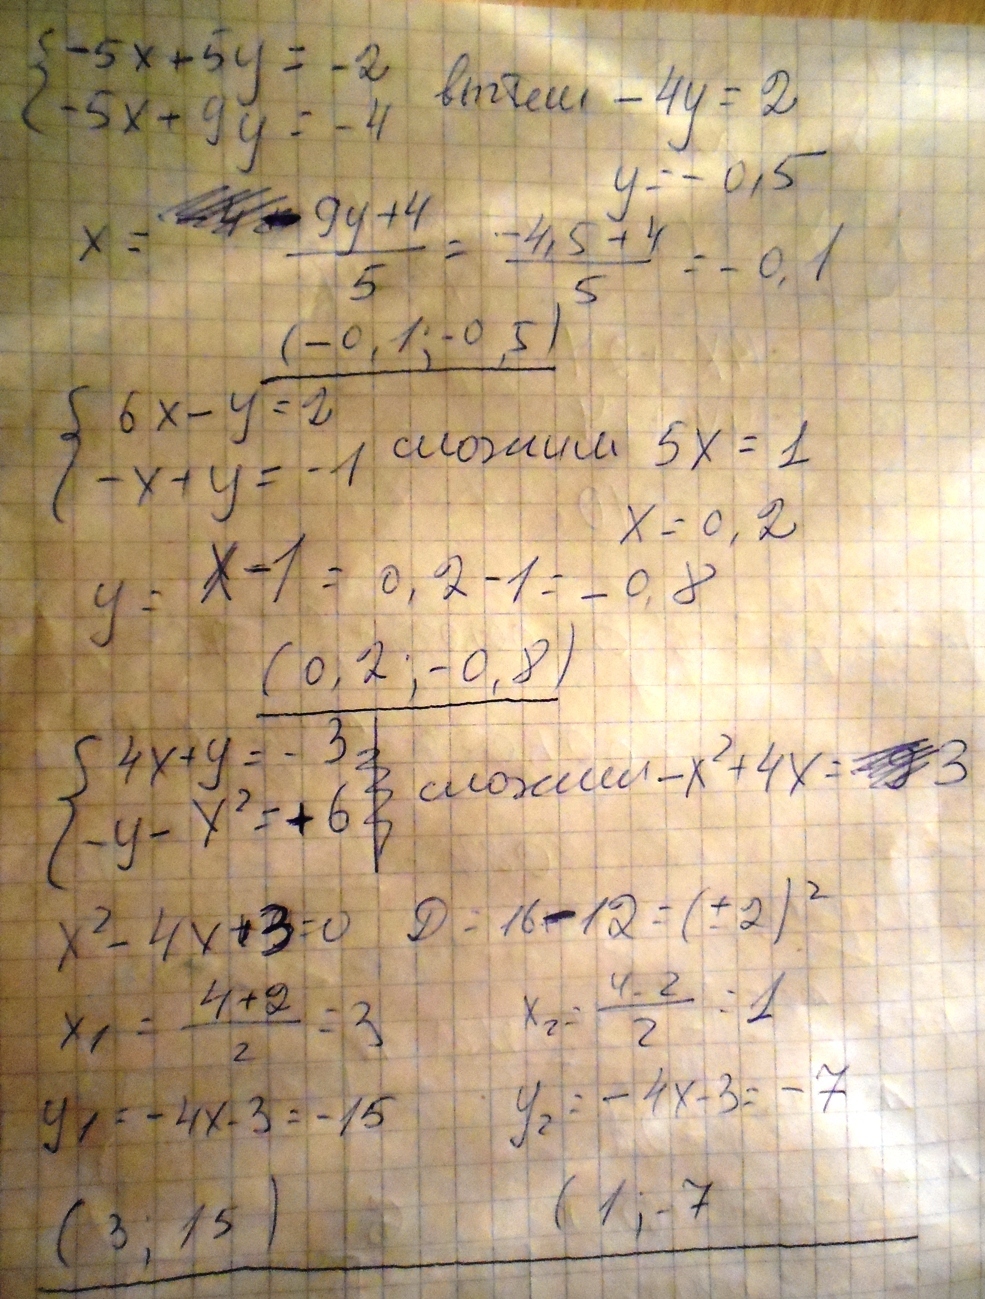 { -5x+5y = -2
-5x+9y = -4 вычтем -4y = 2
y = -0,5
x = 9y+4 / 5 = -4,5+4 / 5 = -0,1
(-0,1; -0,5)
{ 6x-y = 2
-x+y = -1 сложим 5x = 1
x = 0,2
y = x-1 = 0,2-1 = -0,8
(0,2; -0,8)
{ 4x+y = -3
-y-x² = +6 сложим -x²+4x = 3
x²-4x+3=0 D = 16-12 = (±2)²
x₁ = 4+2 / 2 = 3 x₂ = 4-2 / 2 = 1
y₁ = -4x-3 = -15 y₂ = -4x-3 = -7
(3; 15) (1; -7